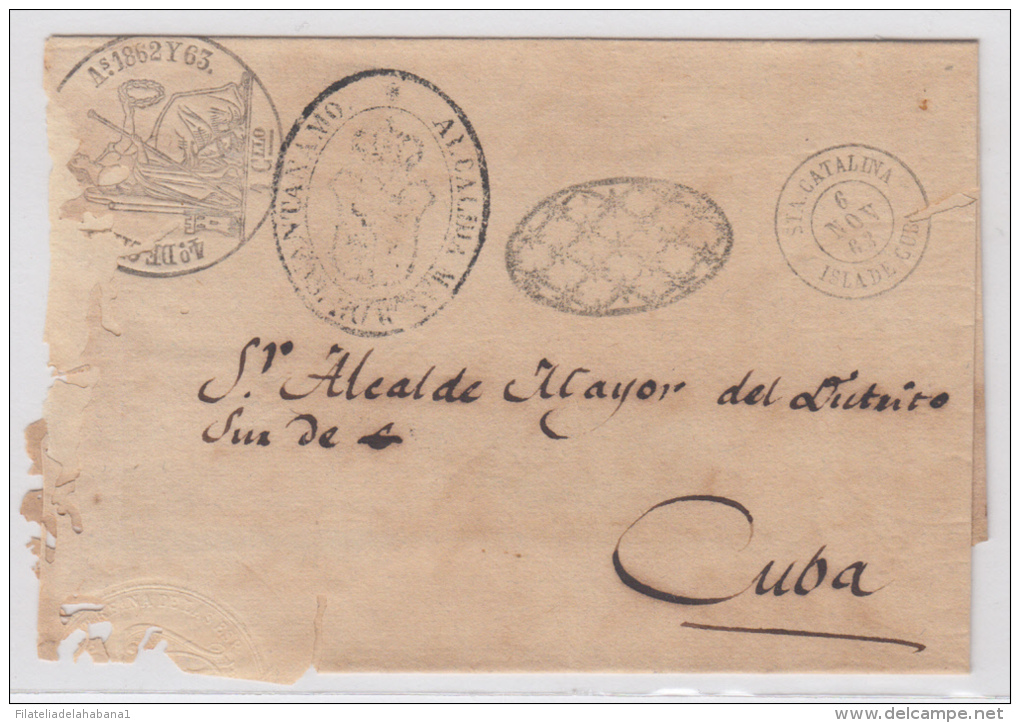 As. 1862 Y 63.
4º DE
ALCALDIA MAYOR DE GUANTANAMO.
STA. CATALINA
6
NOV
63
ISLA DE CUBA
Sr. Alcalde Mayor del Distrito
Sur de
Cuba
Filateliadelahabana1